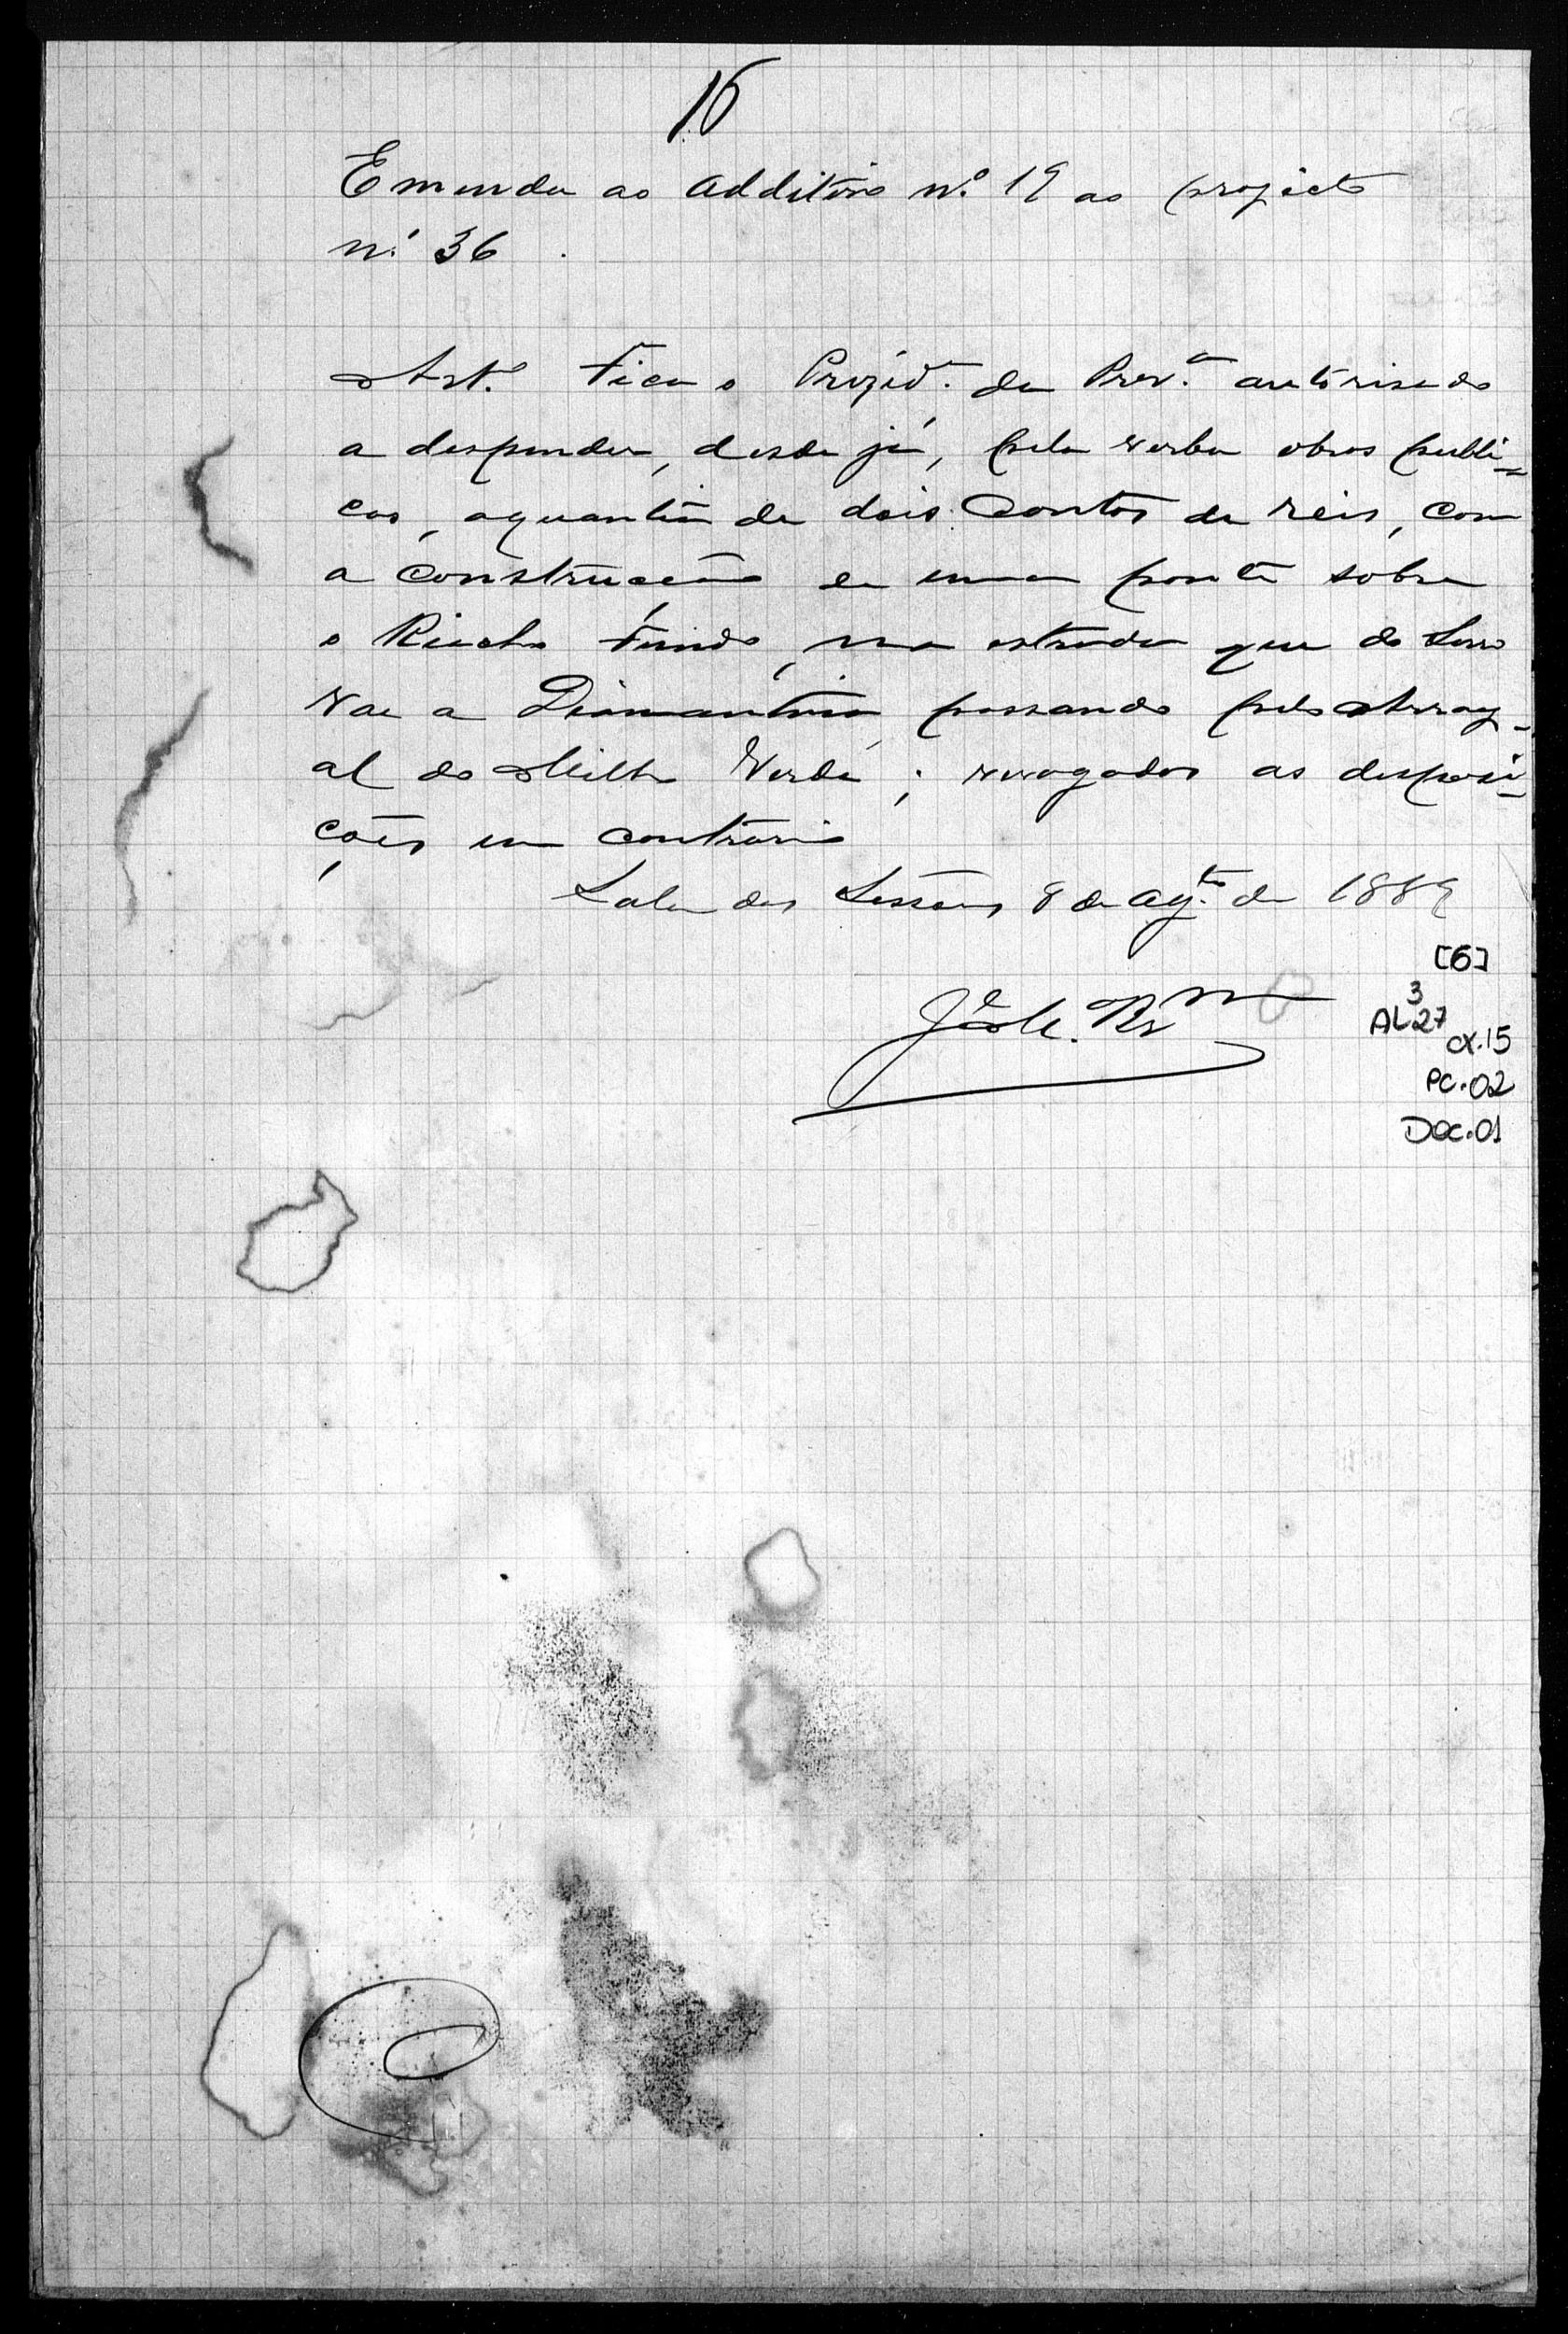 16
Emenda ao additivo nº 19 ao projecto
nº 36.
Art. Fica o Prezidᵉ. da Provª. autorisado
a despender, desde já, pela verba obras publi=
cas, a quantia de dois Contos de reis, com
a construcção de uma ponte sobre
o Riacho Fundo, na estrada que do Serro
vae a Diamantina, passando pelo Array-
al do Milho Verde; revogadas as disposi=
ções em contrario
Sala das Sessões 8 de agᵗᵒ. de 1889
[6]
3
AL 27
CX.15
PC.02
DOC.01